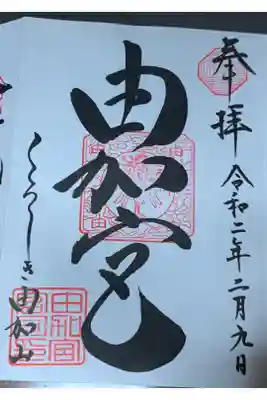 奉拝
令和二年二月九日
由加宮
くらしき由加山